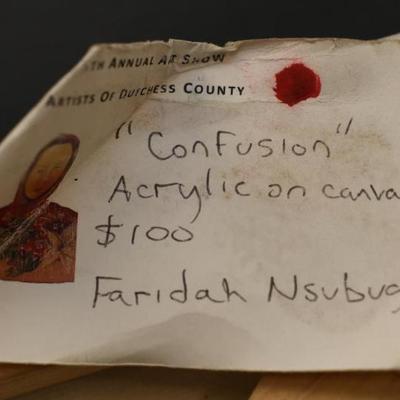 th Annual Art Show
Artists Of Dutchess County
"Confusion"
Acrylic on canva
$100
Faridah Nsubug